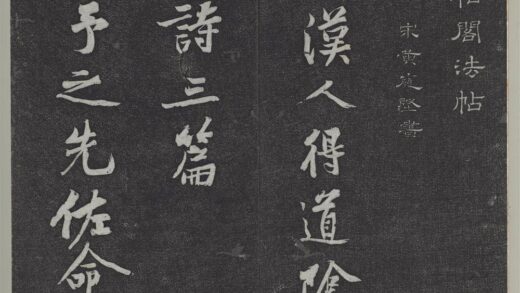 閣法帖
宋黃庭堅書
漢人得道陰
詩三篇
予之先佐命